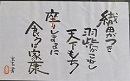 織田つき
羽柴こねし
天下もち
座りしままに
食ふは家康